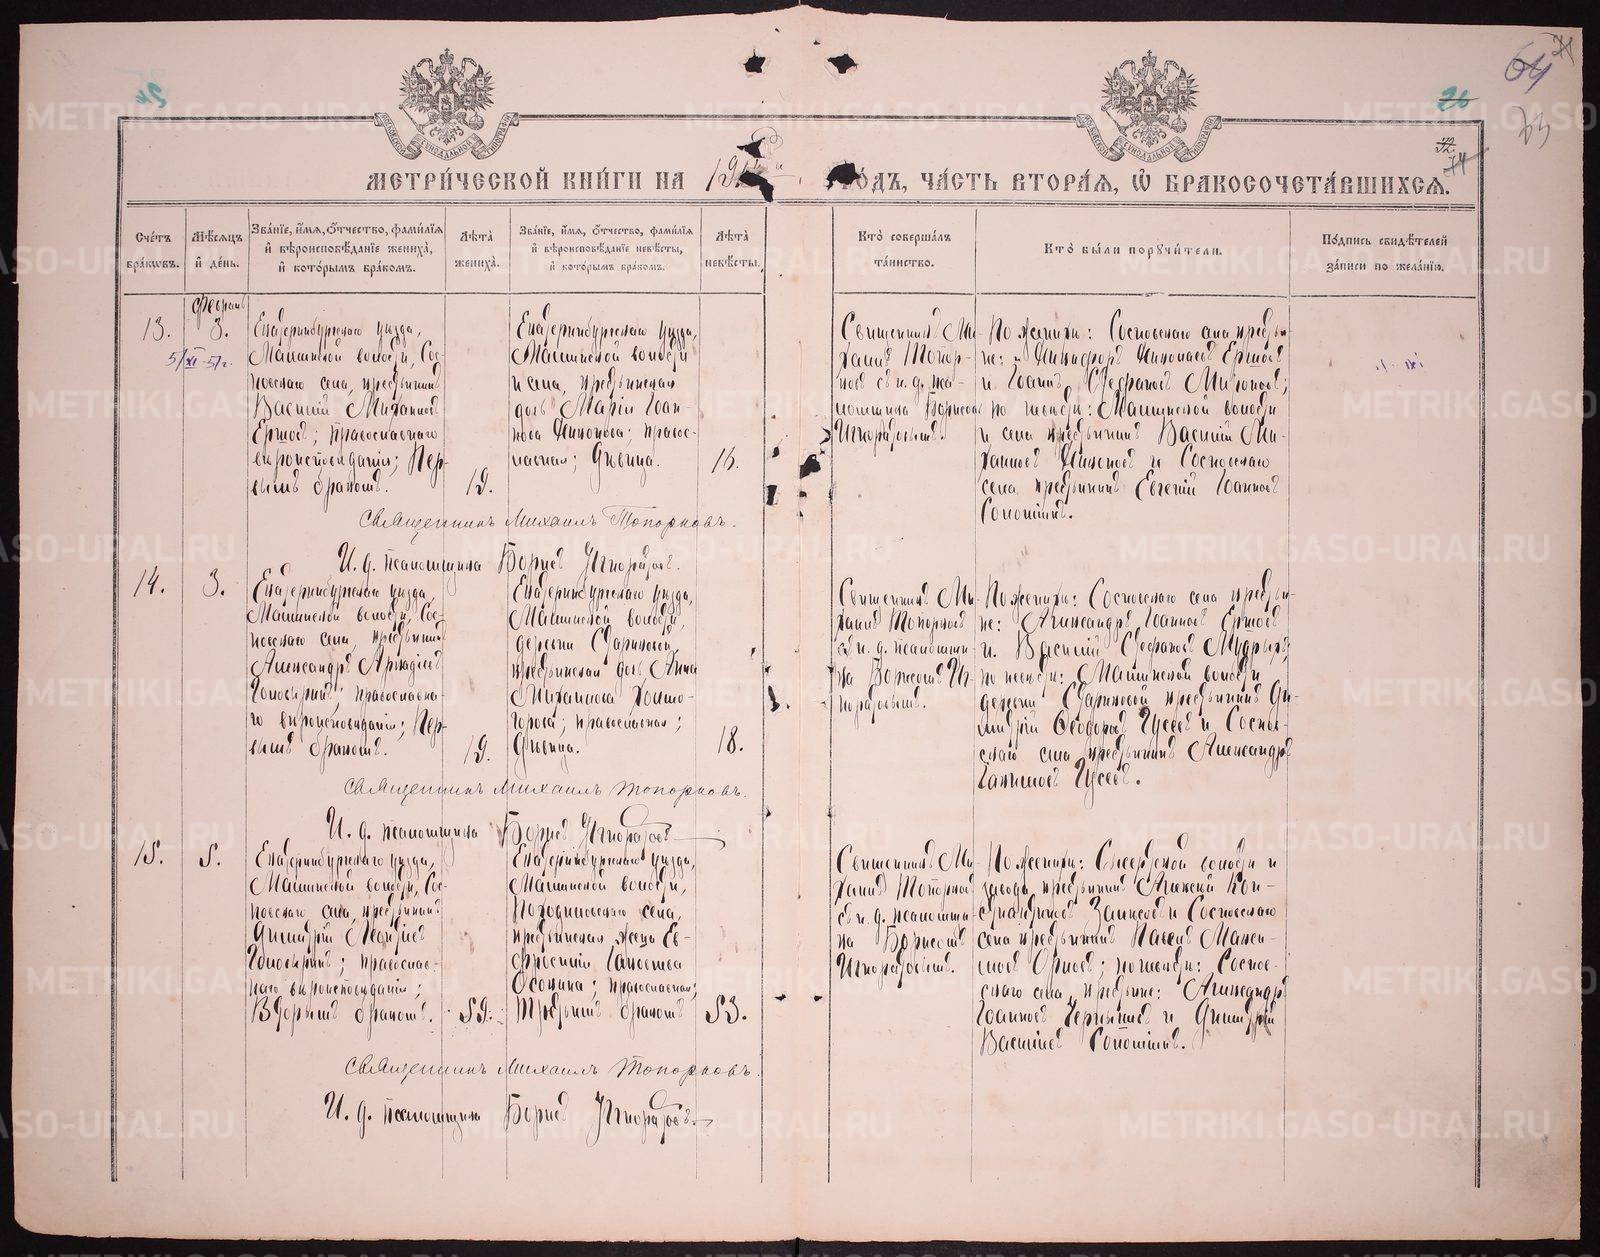 МЕТРИ́ЧЕСКОЙ КНИ́ГИ НА 191 ГО́ДЪ, ЧА́СТЬ ВТОРА́Я, Ѽ БРАКОСОЧЕТА́ВШИХСЯ.
Сче́тъ бра́кѡвъ.
Мѣ́сяцъ и де́нь.
Зва́нїе, и́мя, ѻ́тчество, фами́лїя и вѣроисповѣ́данїе жениха̀, и кото́рымъ бра́комъ.
Лѣ́та жениха̀.
Зва́нїе, и́мя, ѻ́тчество, фами́лїя и вѣроисповѣ́данїе невѣ́сты, и кото́рымъ бра́комъ.
Лѣ́та невѣ́сты.
Кто̀ соверша́лъ та́инство.
Кто̀ бы́ли порꙋчи́тели.
По́дпись свидѣ́телей за́писи по жела́нїю.
Февраль
13.
3.
5/XI-51г.
Екатеринбургскаго уѣзда,
Маминской волости, Сос-
новскаго села, крестьянинъ
Василій Михаиловъ
Ершовъ; православнаго
вѣроисповѣданія; Пер-
вымъ бракомъ.
19.
Екатеринбургскаго уѣзда,
Маминской волости
и села, крестьянская
дочь Марія Іоан-
нова Никонова; правос-
лавная; Дѣвица.
16.
Священникъ Ми-
хаилъ Топор-
ковъ съ и. д. пса-
ломщика Борисомъ
Игноратовымъ.
По женихѣ: Сосновскаго села крестья-
не: Никифоръ Николаевъ Ершовъ
и Іоаннъ Стефановъ Мироновъ;
по невѣстѣ: Маминской волости
и села крестьянинъ Василій Ми-
хаиловъ Никоновъ и Сосновскаго
села крестьянинъ Евгеній Іоанновъ
Священникъ Михаилъ Топорковъ.
И. д. псаломщика Борисъ
14.
3.
Екатеринбургскаго уѣзда,
Маминской волости, Сос-
новскаго села, крестьянинъ
Александръ Аркадіевъ
православна-
го вѣроисповѣданія; Пер-
вымъ бракомъ.
19.
Екатеринбургскаго уѣзда,
Маминской волости,
деревни Стариковой,
крестьянская дочь Анна
Михаилова Холмо-
горова; православная;
Дѣвица.
18.
Священникъ Ми-
хаилъ Топорковъ
съ и. д. псаломщи-
ка Борисомъ
По женихѣ: Сосновскаго села крестья-
не: Александръ Іоанновъ Ершовъ
и Василій Стефановъ Мудрыхъ;
по невѣстѣ: Маминской волости
деревни Стариковой крестьянинъ Ди-
митрій Ѳеодоровъ Гусевъ и Соснов-
скаго села крестьянинъ Александръ
Гусевъ.
Священникъ Михаилъ Топорковъ.
И. д. псаломщика Борисъ
15.
5.
Екатеринбургскаго уѣзда,
Маминской волости, Сос-
новскаго села, крестьянинъ
Димитрій Леонтіевъ
православ-
наго вѣроисповѣданія;
Вторымъ бракомъ.
59.
Екатеринбургскаго уѣзда,
Маминской волости,
села,
крестьянская жена Ев-
фросинія Іаковлева
православная;
Третьимъ бракомъ
53.
Священникъ Ми-
хаилъ Топорковъ
съ и. д. псаломщи-
ка Борисомъ
По женихѣ: Сысертской волости и
завода, крестьянинъ Алексій Кон-
стантиновъ и Сосновскаго
села крестьянинъ Павелъ Макси-
мовъ; по невѣстѣ: Соснов-
скаго села крестьяне: Александръ
Іоанновъ Чернышевъ и Димитрій
Василіевъ
Священникъ Михаилъ Топорковъ.
И. д. псаломщика Борисъ
METRIKI.GASO-URAL.RU